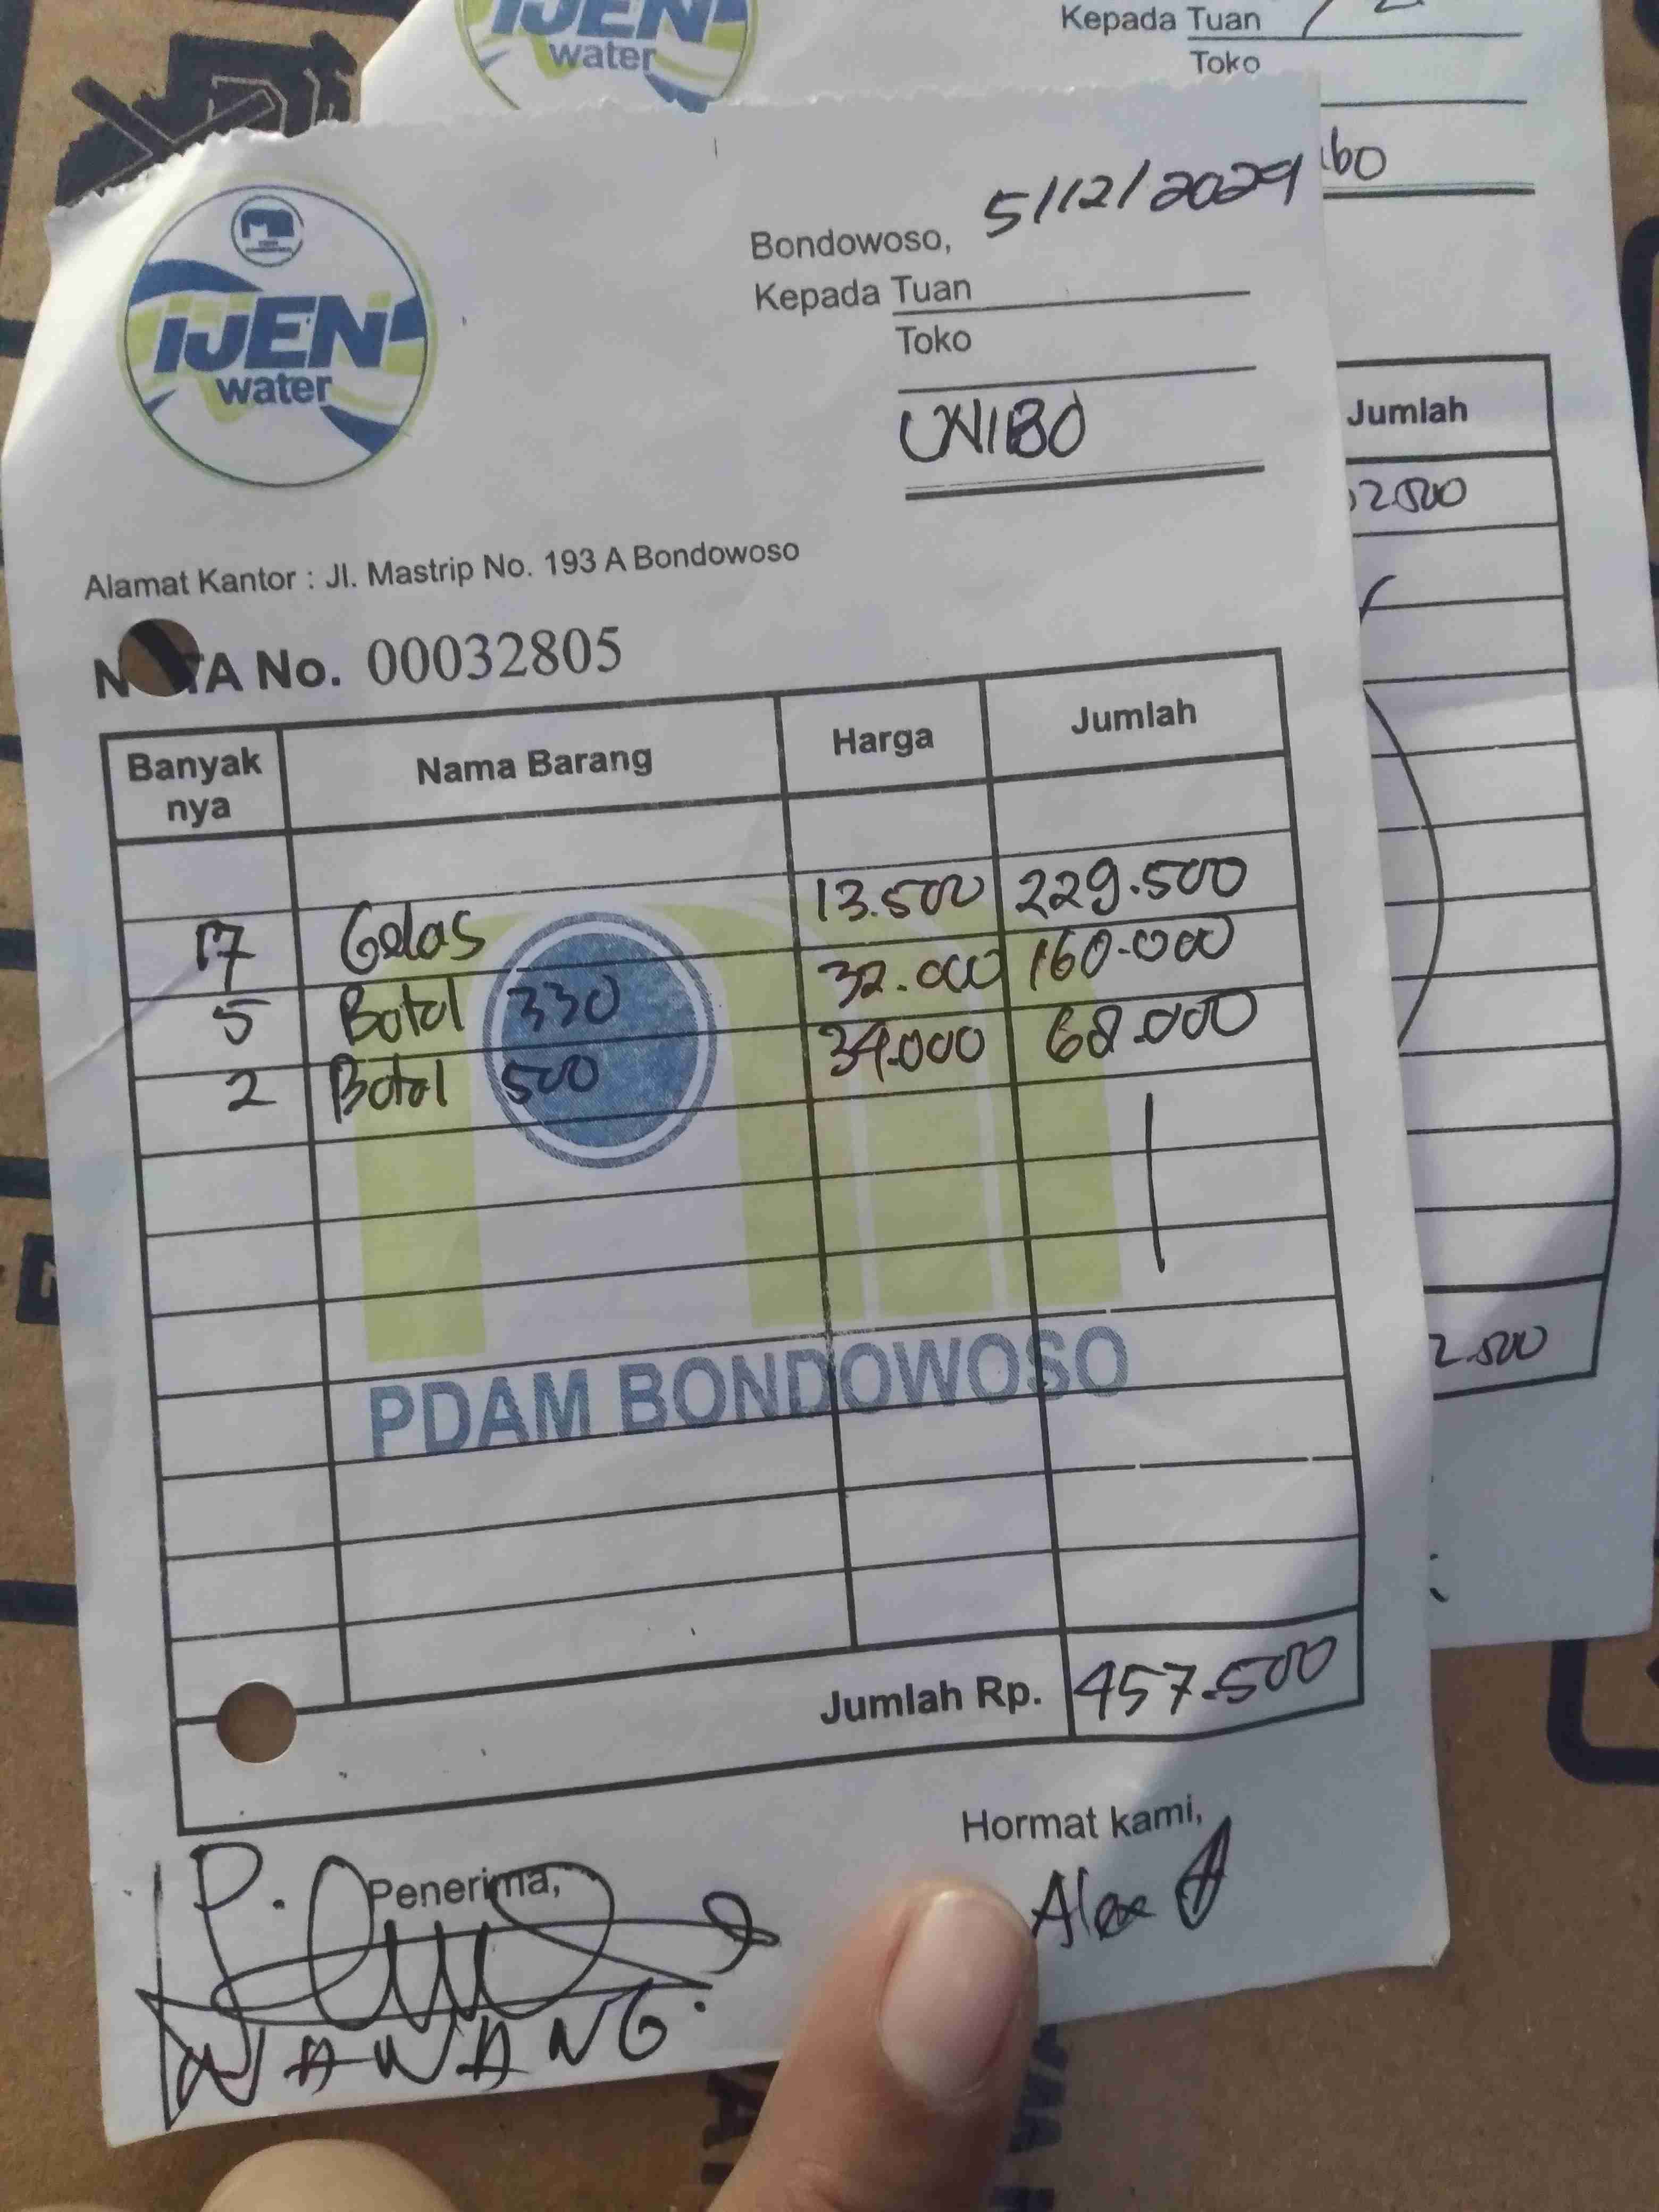 IJEN
water
Kepada Tuan
Toko
Jumlah
2.500
IJEN
water
Bondowoso, 5/12/2024
Kepada Tuan
Toko
UNIBO
Alamat Kantor : Jl. Mastrip No. 193 A Bondowoso
NOTA No. 00032805
Banyak nya Nama Barang Harga Jumlah
17 Gelas 13.500 229.500
5 Botol 330 32.000 160.000
2 Botol 500 34.000 68.000
PDAM BONDOWOSO
Jumlah Rp. 457.500
Penerima, Hormat kami,
P. Alex
NAWANG.